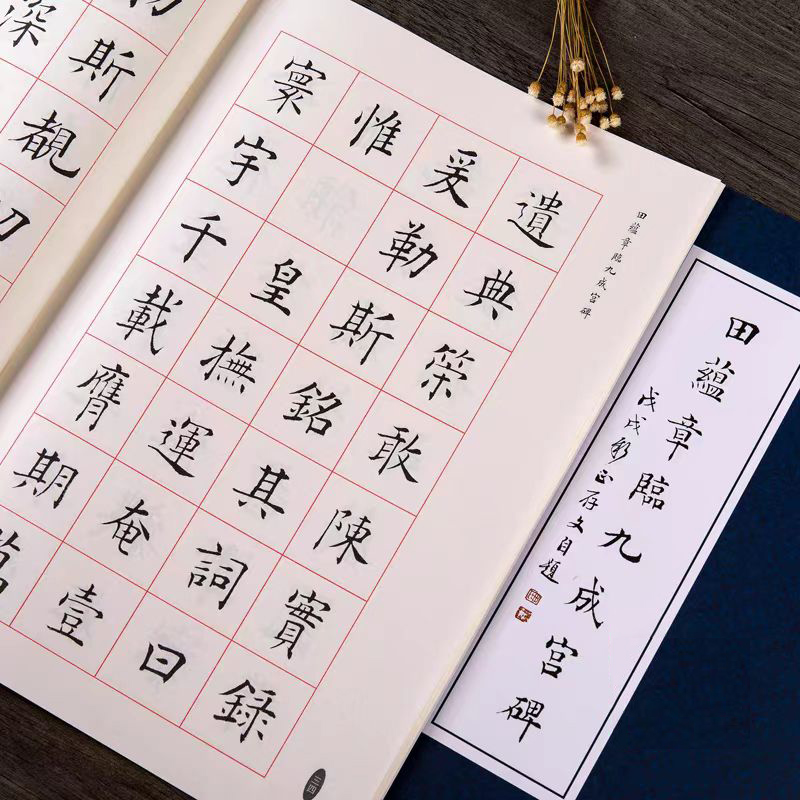 田蘊章臨九成宫碑
遺典策敢陳實錄
爰勒斯銘其詞曰
惟皇撫運奄壹
寰宇千載膺期萬
三四
物斯覩功
深
田蘊章臨九成宫碑
戊戌正存文自題